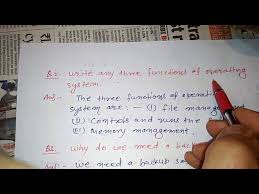 Q1. Write any three functions of operating
system.
Ans:- The three functions of operat
system are :- (i) file manage
(ii) Controls and runs the
(iii) Memory management.
Q2. Why do we need a back
Ans:- We need a backup s